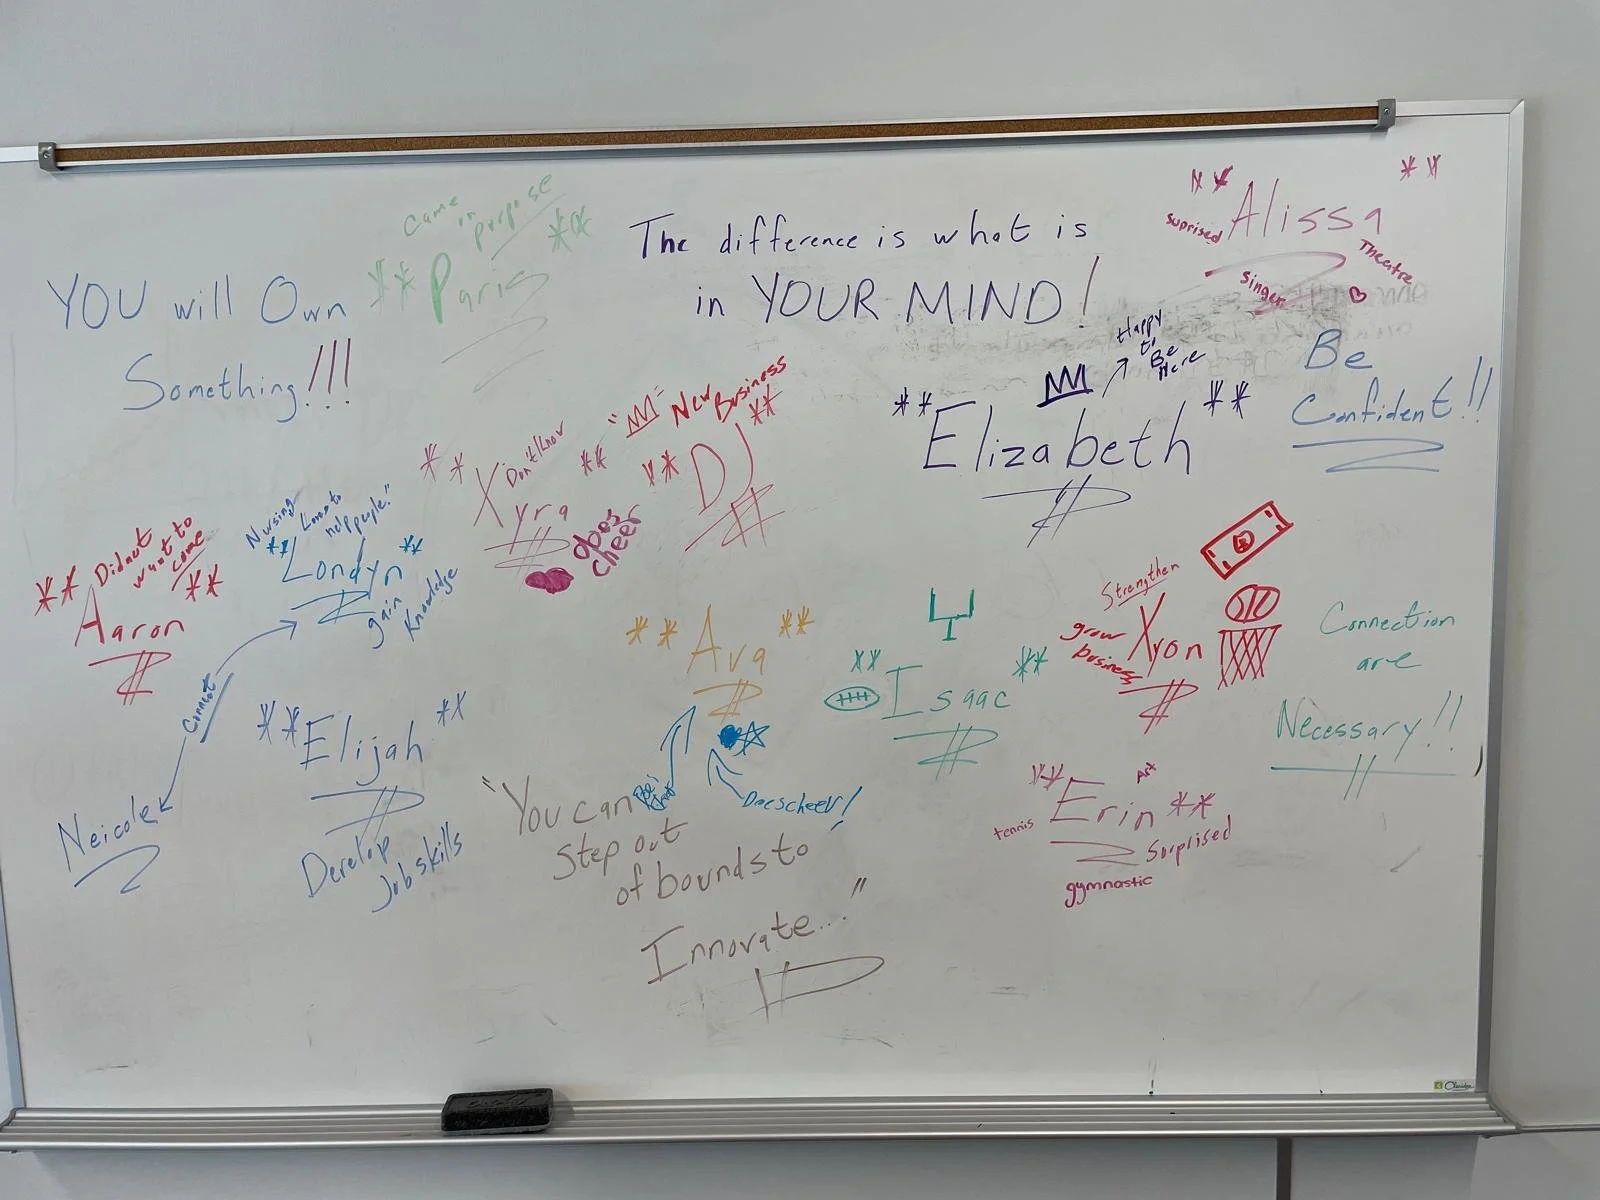 YOU will Own
Something!!!
Came in purpose
** Paris **
The difference is what is
in YOUR MIND!
** Alissa **
Suprised
Singer
Theatre
Happy
to
Be
Here
** Elizabeth **
Be
Confident!!
"New Business
** DJ **
Don't/know
** Xyra **
does
cheer
Nursing
Love to
help people."
** Londyn **
gain
Knowledge
Didnt
want to
come
** Aaron **
Connect
Neicole
** Elijah **
Develop
Job skills
** Ava **
Does cheer!
"You can
Step out
of bounds to
Innovate..."
** Isaac **
Strengthen
grow
business
Xyon
Connection
are
Necessary!!
Art
** Erin **
tennis
Surprised
gymnastic